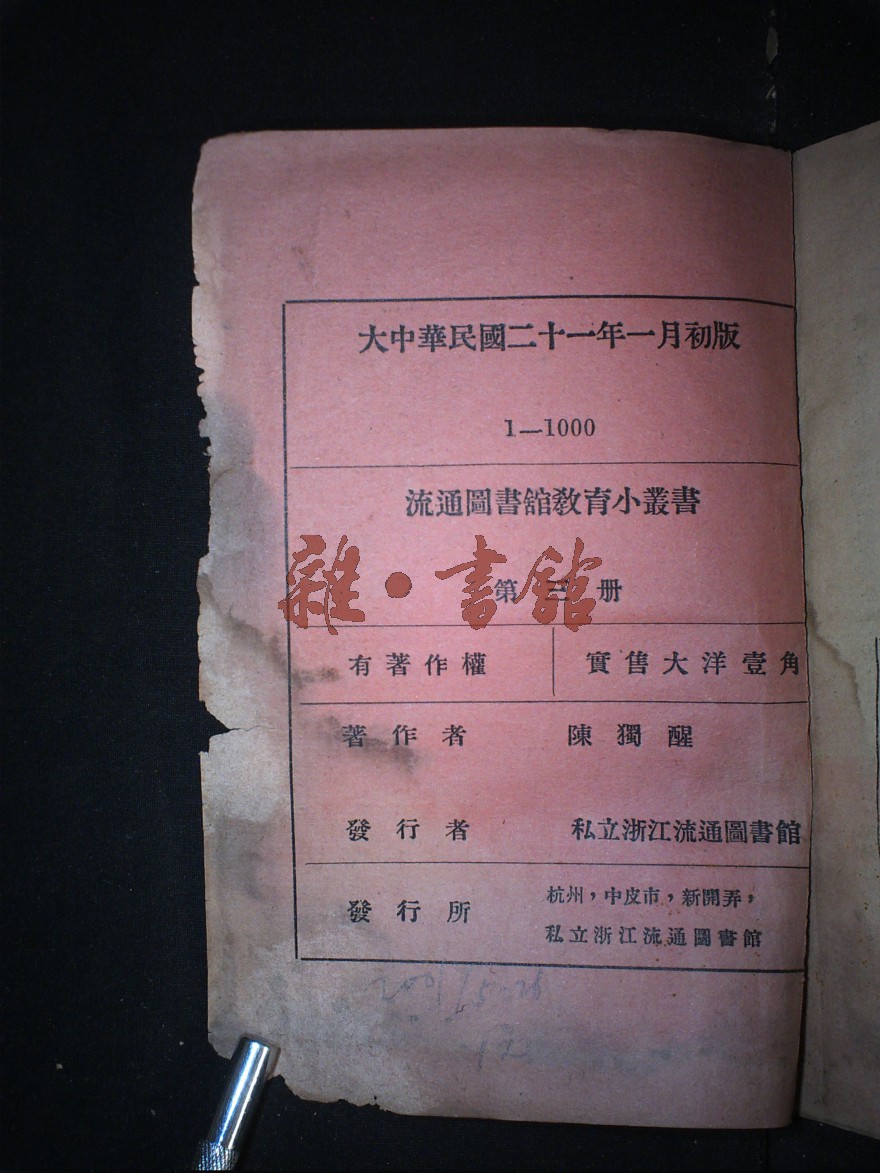 大中華民國二十一年一月初版
1—1000
流通圖書舘教育小叢書
第三册
雜·書館
有著作權
實售大洋壹角
著作者 陳獨醒
發行者 私立浙江流通圖書館
發行所
杭州，中皮市，新開弄，
私立浙江流通圖書館